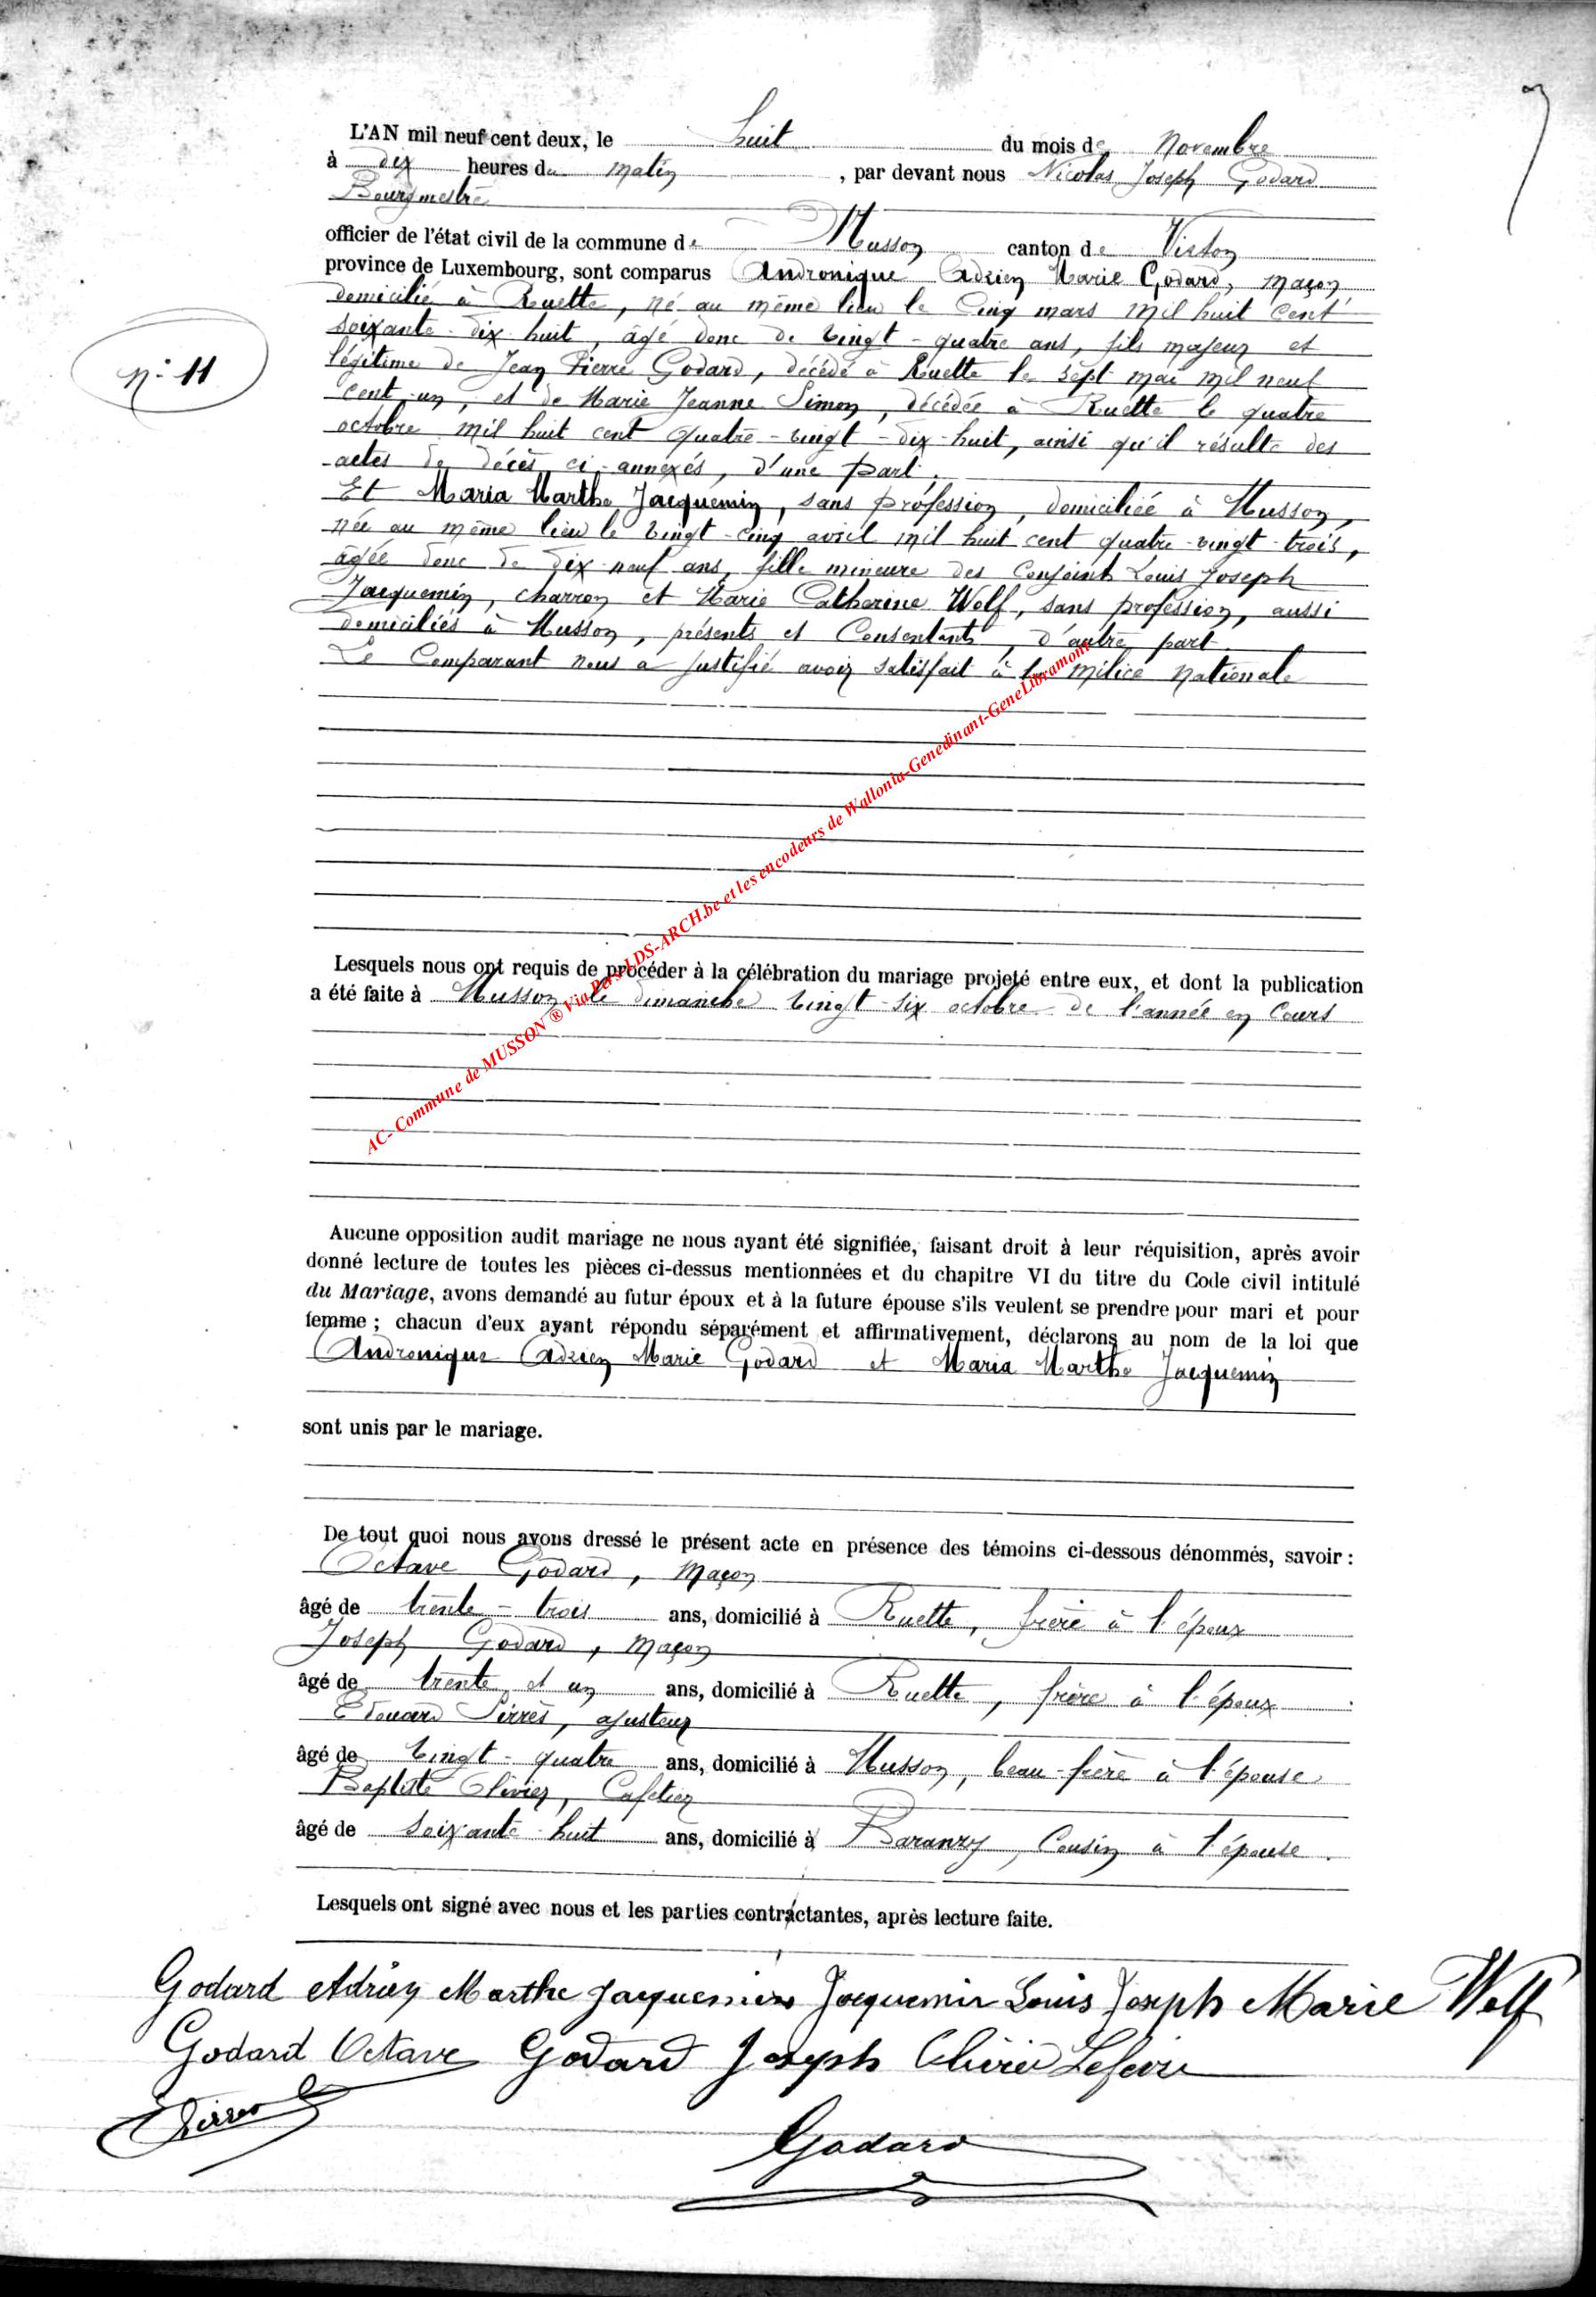 L'AN mil neuf cent deux, le huit du mois de Novembre
à dix heures du matin, par devant nous Nicolas Joseph Godard
Bourgmestre
officier de l'état civil de la commune de Musson canton de Virton
province de Luxembourg, sont comparus Andronique Adrien Marie Godard, maçon,
domicilié à Ruette, né au même lieu le cinq mars mil huit cent
n° 11
soixante-dix-huit, âgé donc de vingt-quatre ans, fils majeur et
légitime de Jean Pierre Godard, décédé à Ruette le sept mai mil neuf
cent un, et de Marie Jeanne Simon, décédée à Ruette le quatre
octobre mil huit cent quatre-vingt-dix-huit, ainsi qu'il résulte des
actes de décès ci-annexés, d'une part,
Et Maria Marthe Jacquemin, sans profession, domiciliée à Musson,
née au même lieu le vingt-cinq avril mil huit cent quatre-vingt-trois,
âgée donc de dix-neuf ans, fille mineure des conjoints Louis Joseph
Jacquemin, charron et Marie Catherine Welf, sans profession, aussi
domiciliés à Musson, présents et consentants, d'autre part.
Le Comparant nous a justifié avoir satisfait à la milice nationale
AC- Commune de MUSSON ® Via Pers LDS-ARCH.be et les encodeurs de Wallonia-Genedinant-GeneLibramont
Lesquels nous ont requis de procéder à la célébration du mariage projeté entre eux, et dont la publication
a été faite à Musson le dimanche vingt-six octobre de l'année en cours
Aucune opposition audit mariage ne nous ayant été signifiée, faisant droit à leur réquisition, après avoir
donné lecture de toutes les pièces ci-dessus mentionnées et du chapitre VI du titre du Code civil intitulé
du Mariage, avons demandé au futur époux et à la future épouse s'ils veulent se prendre pour mari et pour
femme ; chacun d'eux ayant répondu séparément et affirmativement, déclarons au nom de la loi que
Andronique Adrien Marie Godard et Maria Marthe Jacquemin
sont unis par le mariage.
De tout quoi nous avons dressé le présent acte en présence des témoins ci-dessous dénommés, savoir :
Octave Godard, maçon
âgé de trente-trois ans, domicilié à Ruette, frère à l'époux
Joseph Godard, maçon
âgé de trente et un ans, domicilié à Ruette, frère à l'époux
Edouard Pirrès, ajusteur
âgé de vingt-quatre ans, domicilié à Musson, beau-frère à l'épouse
Baptiste Olivier, Cafetier
âgé de soixante-huit ans, domicilié à Baranzy, Cousin à l'épouse.
Lesquels ont signé avec nous et les parties contractantes, après lecture faite.
Godard Adrien Marthe Jacquemin Jacquemin Louis Joseph Marie Welf
Godard Octave Godard Joseph Olivier Lefevre
Godard